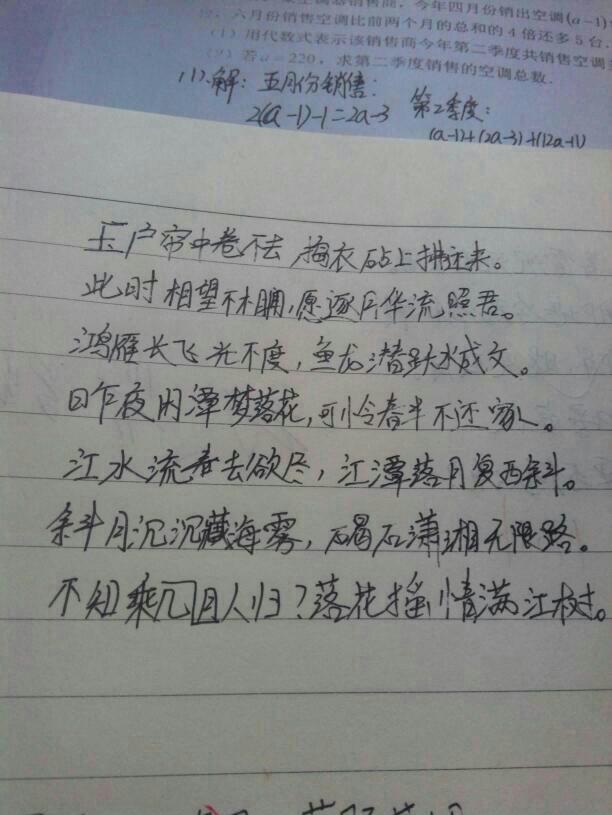 空调器销售商，今年四月份销出空调(a-1)
六月份销售空调比前两个月的总和的4倍还多5台.
(1)用代数式表示该销售商今年第二季度共销售空调
(2)若a=220，求第二季度销售的空调总数.
(1).解：五月份销售：
2(a-1)-1=2a-3 第2季度：
(a-1)+(2a-3)+(12a-11)
玉户帘中卷不去，捣衣砧上拂还来。
此时相望不相闻，愿逐月华流照君。
鸿雁长飞光不度，鱼龙潜跃水成文。
昨夜闲潭梦落花，可怜春半不还家。
江水流春去欲尽，江潭落月复西斜。
斜月沉沉藏海雾，碣石潇湘无限路。
不知乘几月人归？落花摇情满江树。